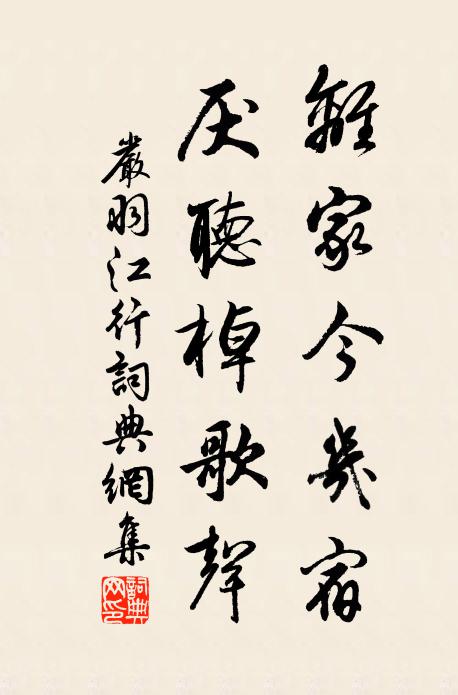 離家今幾宿
厌聽棹歌聲
嚴羽江行詞典網集
詞典网印